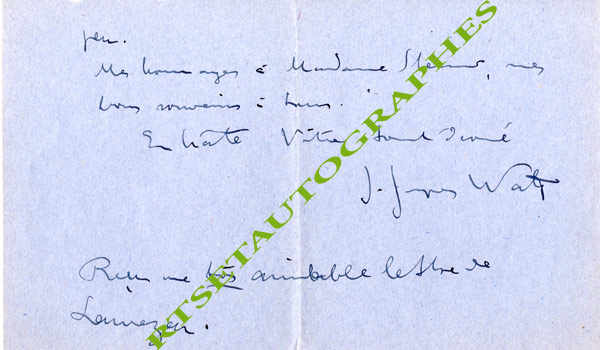 peu.
Mes hommages à Madame mes
bons souvenirs à tous.
En hâte Votre tout dévoué
J. Jacques Walt
Reçu une très aimable lettre de
ARTSETAUTOGRAPHES